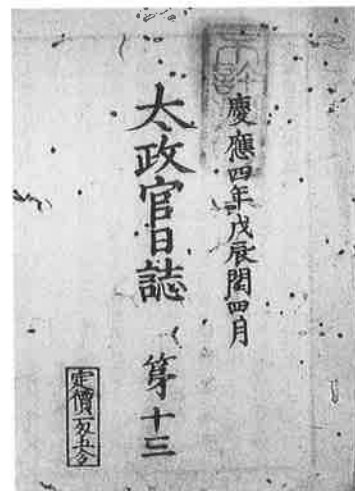 慶應四年戊辰閏四月
太政官日誌 第十三
定價一匁五分